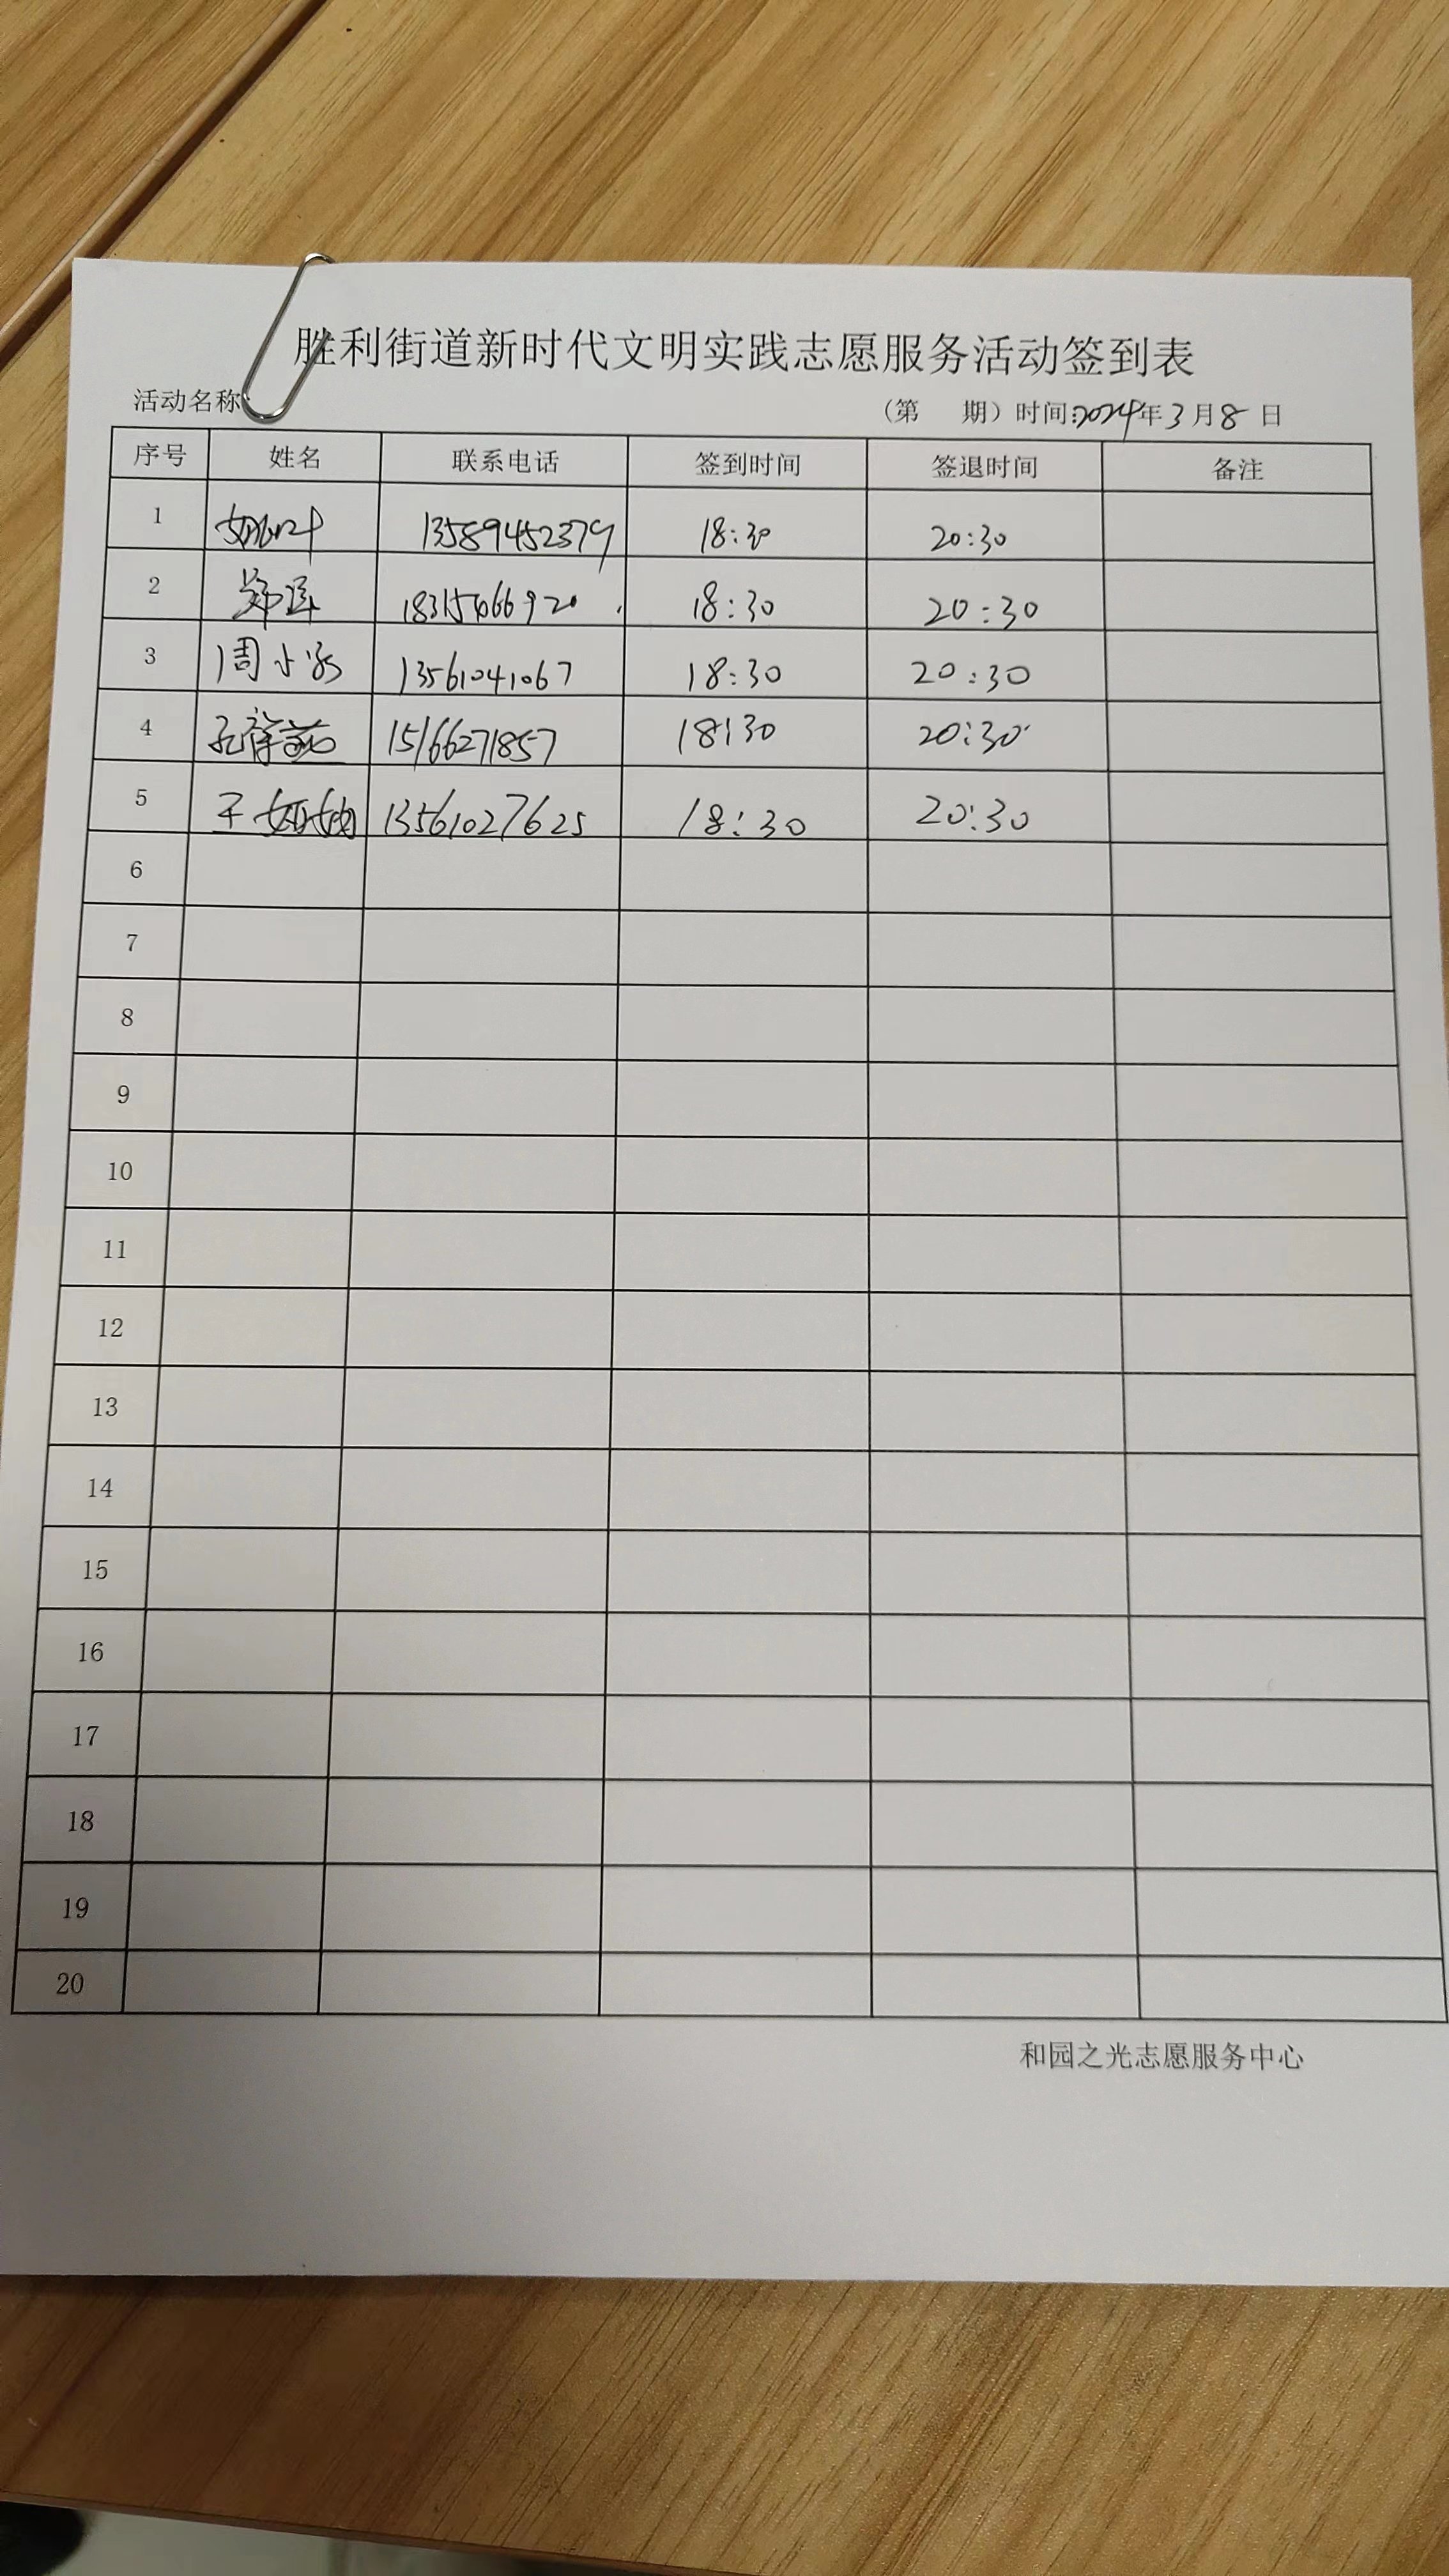 胜利街道新时代文明实践志愿服务活动签到表
活动名称 （第 期）时间:2024年3月8日
序号 姓名 联系电话 签到时间 签退时间 备注
1 13589452379 18:30 20:30
2 18315466920 18:30 20:30
3 周小 13561041067 18:30 20:30
4 孔祥 15166271857 18:30 20:30
5 王 13561027625 18:30 20:30
6
7
8
9
10
11
12
13
14
15
16
17
18
19
20
和园之光志愿服务中心